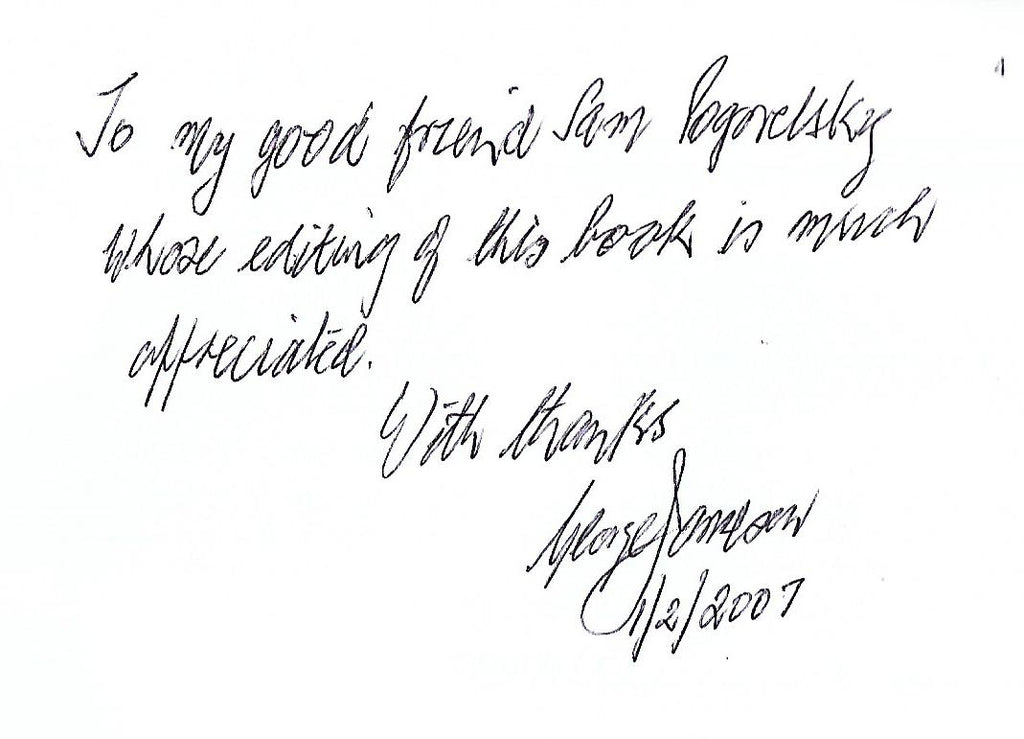 To my good friend Sam Pogorelsky
whose editing of this book is much
appreciated.
With thanks
George Jameson
1/2/2007